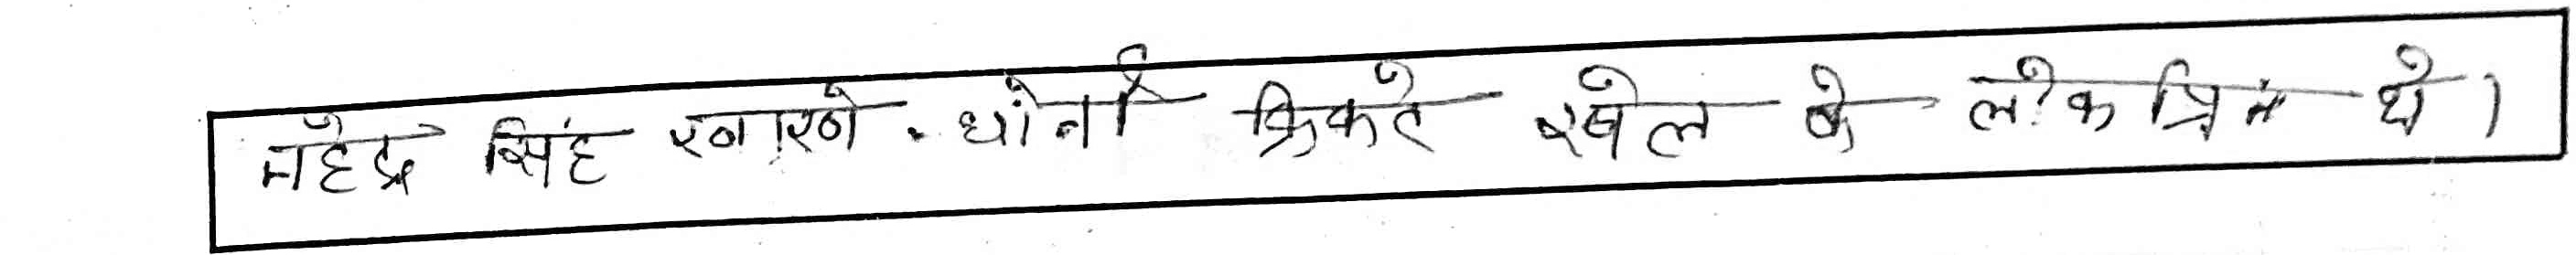 महेंद्र सिंह धोनी क्रिकेट खेल के लोकप्रिय थे।